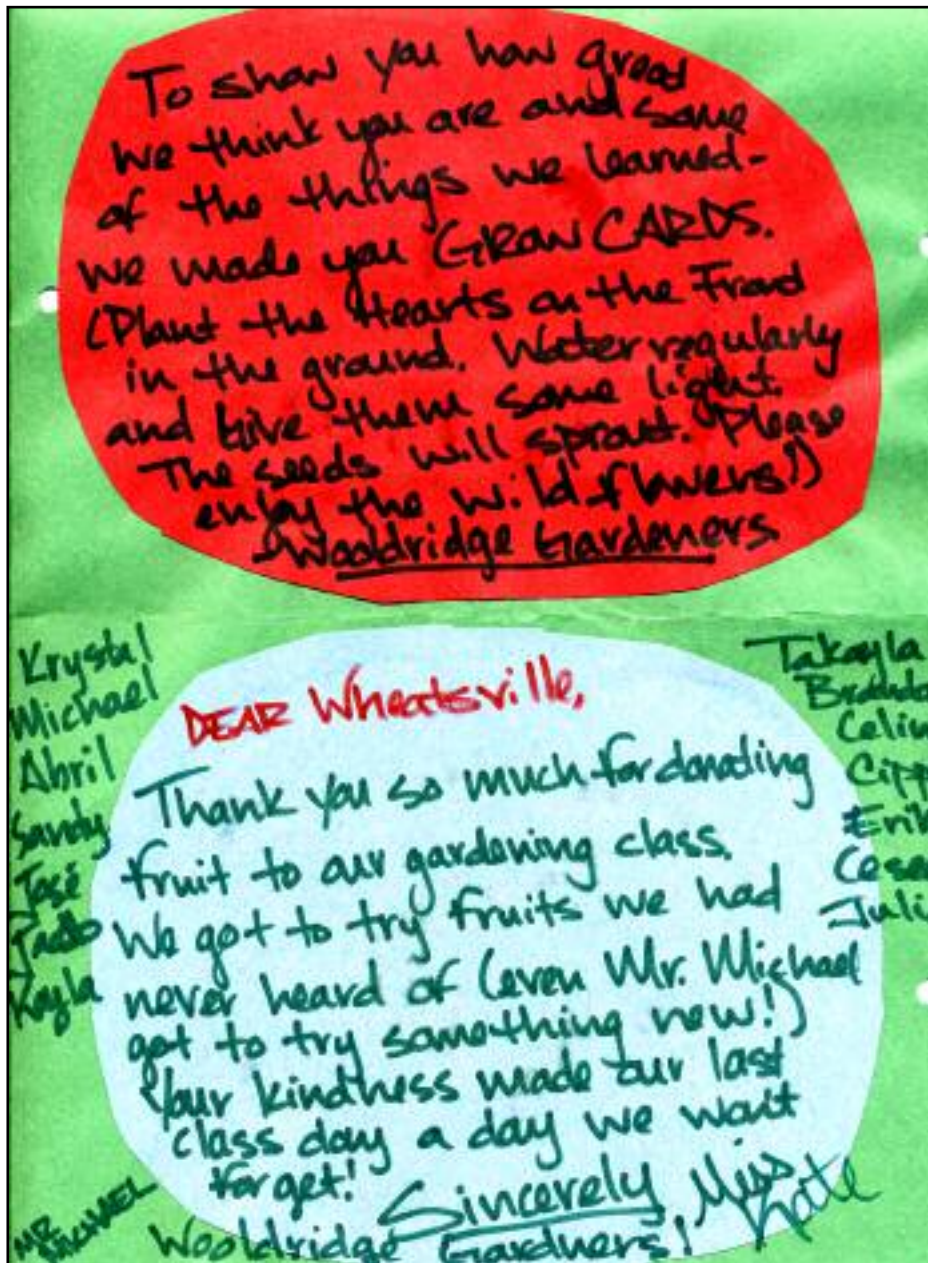 To show you how great
we think you are and some
of the things we learned-
we made you GROW CARDS.
(Plant the Hearts on the Front
in the ground. Water regularly
and Give them some light.
The seeds will sprout. Please
enjoy the wildflowers!)
-Wooldridge Gardeners
Krystal
Michael
Abril
Sandy
José
Kayla
DEAR Wheatsville,
Thank you so much for donating
fruit to our gardening class.
We got to try fruits we had
never heard of (even Mr. Michael
got to try something new!)
Your kindness made our last
class day a day we wont
forget!
Sincerely
Wooldridge Gardners!
Miss Katie
MR. MICHAEL
Takayla
Brando
Celin
Cipp
Erik
Cesa
Juli